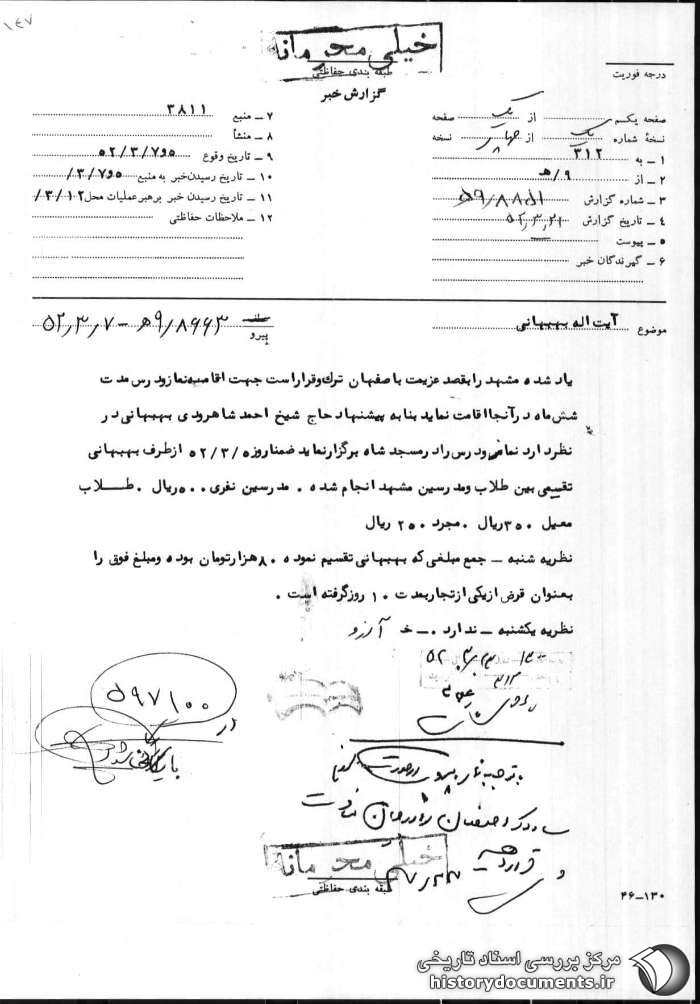 ۱۴۷
خیلی محرمانه
طبقه بندی حفاظتی
درجه فوریت
گزارش خبر
صفحه یکم از یک صفحه
نسخهٔ شماره یک از چهار نسخه
۱ ـ به ۳۱۲
۲ ـ از ۹/ﻫ
۳ ـ شماره گزارش
۴ ـ تاریخ گزارش ۵۲٫۳٫۲۱
۵ ـ پیوست
۶ ـ گیرندگان خبر
۷ ـ منبع ۳۸۱۱
۸ ـ منشأ
۹ ـ تاریخ وقوع ۵۲/۳/۷و۵
۱۰ ـ تاریخ رسیدن خبر به منبع ۳/۷و۵/
۱۱ ـ تاریخ رسیدن خبر برهبر عملیات محل ۳/۱۲/
۱۲ ـ ملاحظات حفاظتی
موضوع آیت اله بهبهانی
پیرو ۹/۸۶۶۳ﻫ ـ ۵۲٫۳٫۷
یاد شده مشهد را بقصد عزیمت باصفهان ترک وقرار است جهت اقامه نماز ودرس مدت
شش ماه در آنجا اقامت نماید بنا به پیشنهاد حاج شیخ احمد شاهرودی بهبهانی در
نظر دارد نماز ودرس را در مسجد شاه برگزار نماید ضمنا روز ۵۲/۳/۵ از طرف بهبهانی
تقسیمی بین طلاب ومدرسین مشهد انجام شده . مدرسین نفری ۵۰۰ ریال . طلاب
معیل ۳۵۰ ریال . مجرد ۲۵۰ ریال
نظریه شنبه ـ جمع مبلغی که بهبهانی تقسیم نموده ۸۰ هزار تومان بوده ومبلغ فوق را
بعنوان قرض از یکی از تجار بمدت ۱۰ روز گرفته است .
نظریه یکشنبه ـ ندارد . ـ خ آرزو
۳۱۲
۵۹۷۱۰۰
در
بایگانی شود
ساواک اصفهان را در جریان
قرار دهید
خیلی محرمانه
طبقه بندی حفاظتی
۴۶ـ۱۳۰
مرکز بررسی اسناد تاریخی
historydocuments.ir